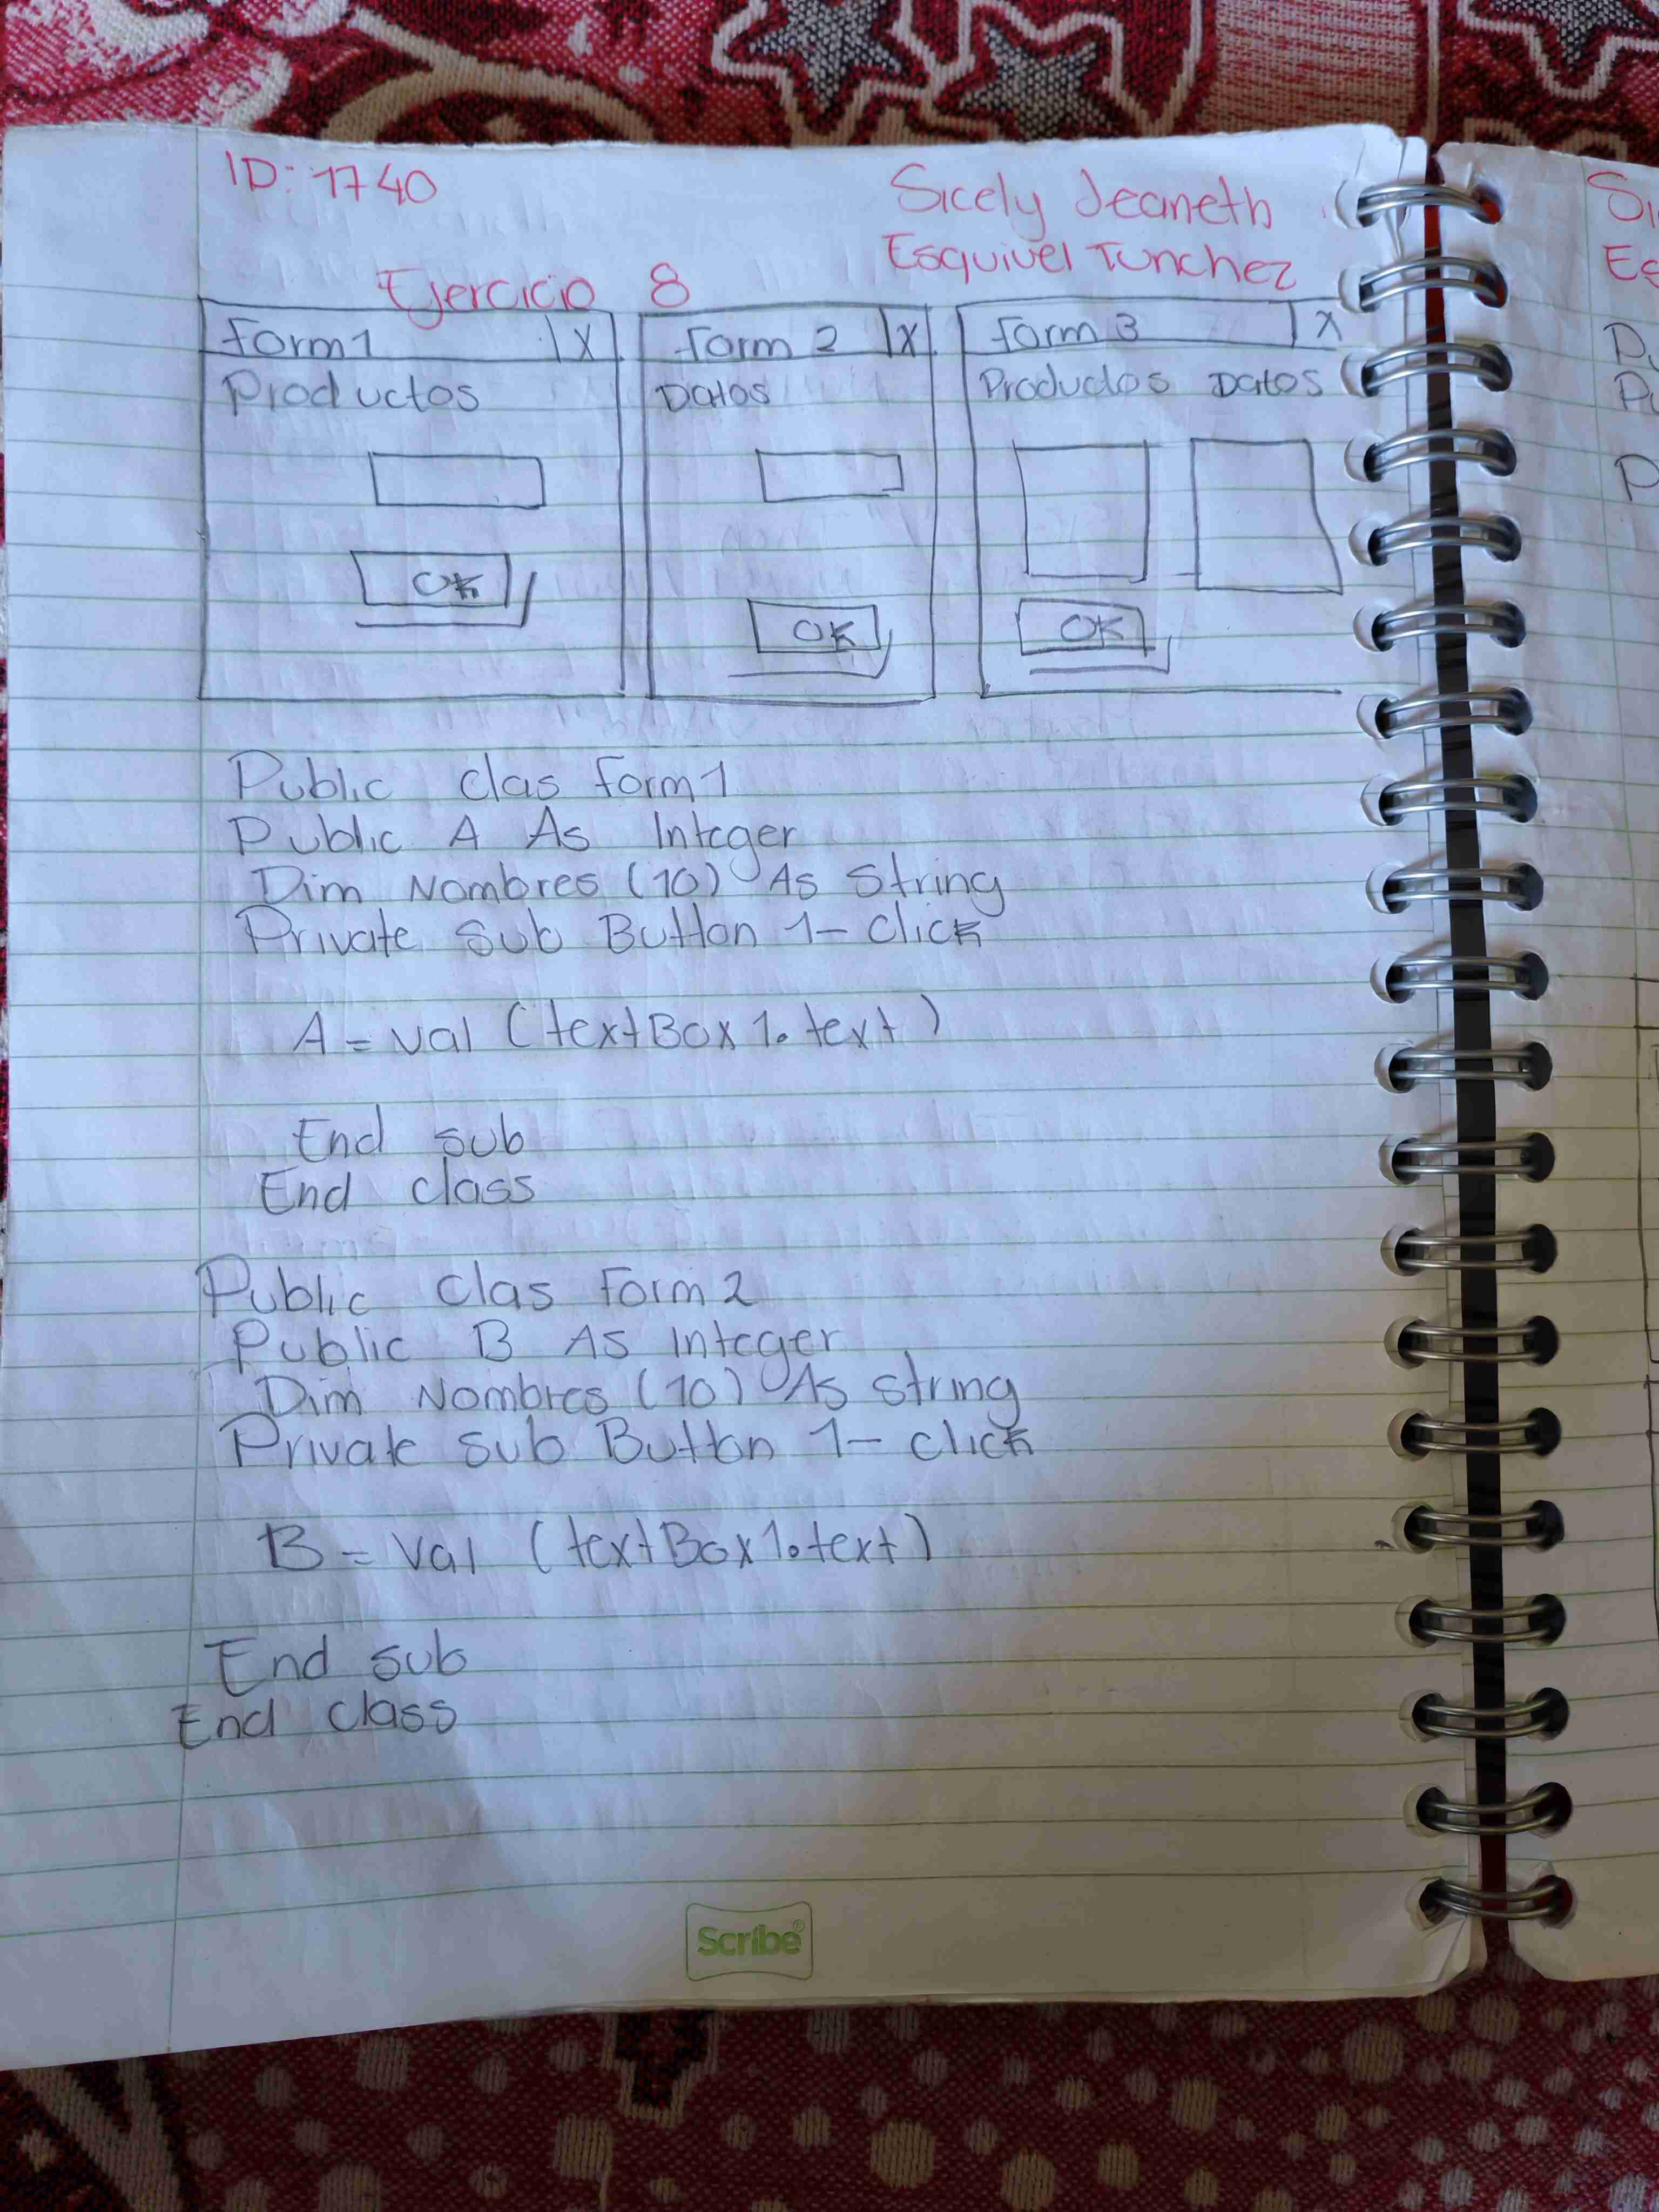 ID: 1740
Sicely Jeaneth
Esquivel Tunchez
Ejercicio 8
Form 1 X
Productos
OK
Form 2 X
Datos
OK
Form 3 X
Productos Datos
OK
Public clas Form 1
Public A As Integer
Dim Nombres (10) As String
Private sub Button 1- Click
A = val (textBox 1. text)
End sub
End class
Public Clas Form 2
Public B As Integer
Dim Nombres (10) As string
Private sub Button 1- click
B = Val (textBox 1. text)
End sub
End class
Scribe®